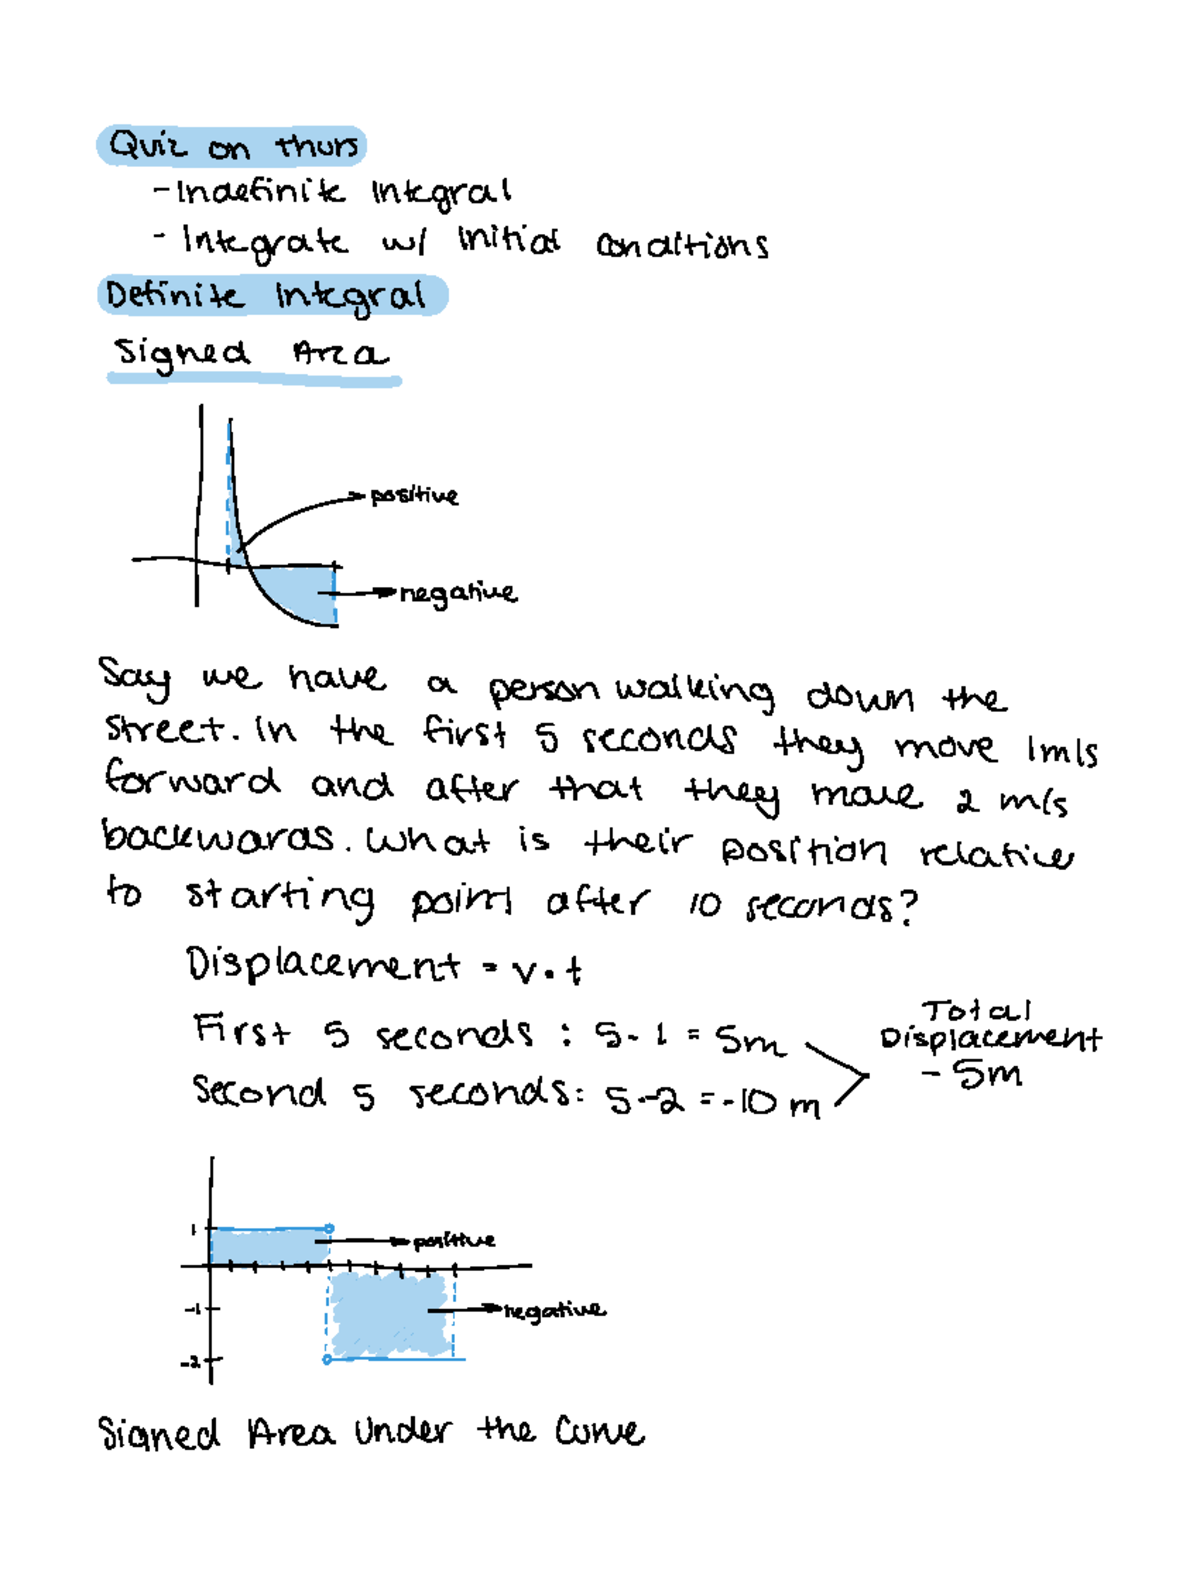 Quiz on thurs
- Indefinite Integral
- Integrate w/ initial conditions
Definite Integral
Signed Area
positive
negative
Say we have a person walking down the
street. In the first 5 seconds they move 1m/s
forward and after that they move 2 m/s
backwards. What is their position relative
to starting point after 10 seconds?
Displacement = v • t
First 5 seconds : 5 · 1 = 5m
Second 5 seconds: 5 · -2 = -10 m
Total
Displacement
- 5m
1
positive
-1
negative
-2
Signed Area Under the Curve